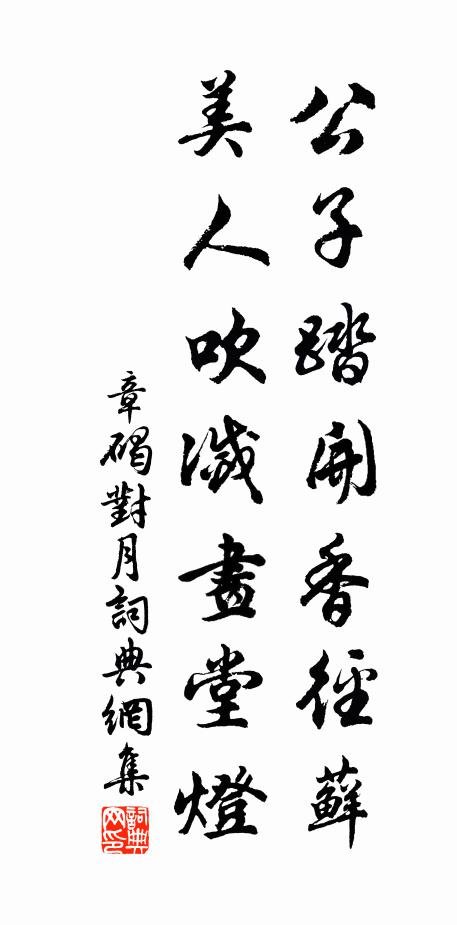 公子踏開香徑蘚
美人吹滅畫堂燈
章碣對月詞典網集
詞典网印